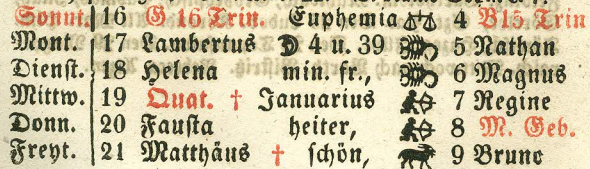 Sonnt. 16 G 16 Trin. Euphemia ♎ 4 B15 Trin
Mont. 17 Lambertus D 4 u. 39 ♏ 5 Nathan
Dienst. 18 Helena min. fr., ♏ 6 Magnus
Mittw. 19 Quat. † Januarius ♐ 7 Regine
Donn. 20 Fausta heiter, ♐ 8 M. Geb.
Freyt. 21 Matthäus † schön, ♑ 9 Bruno